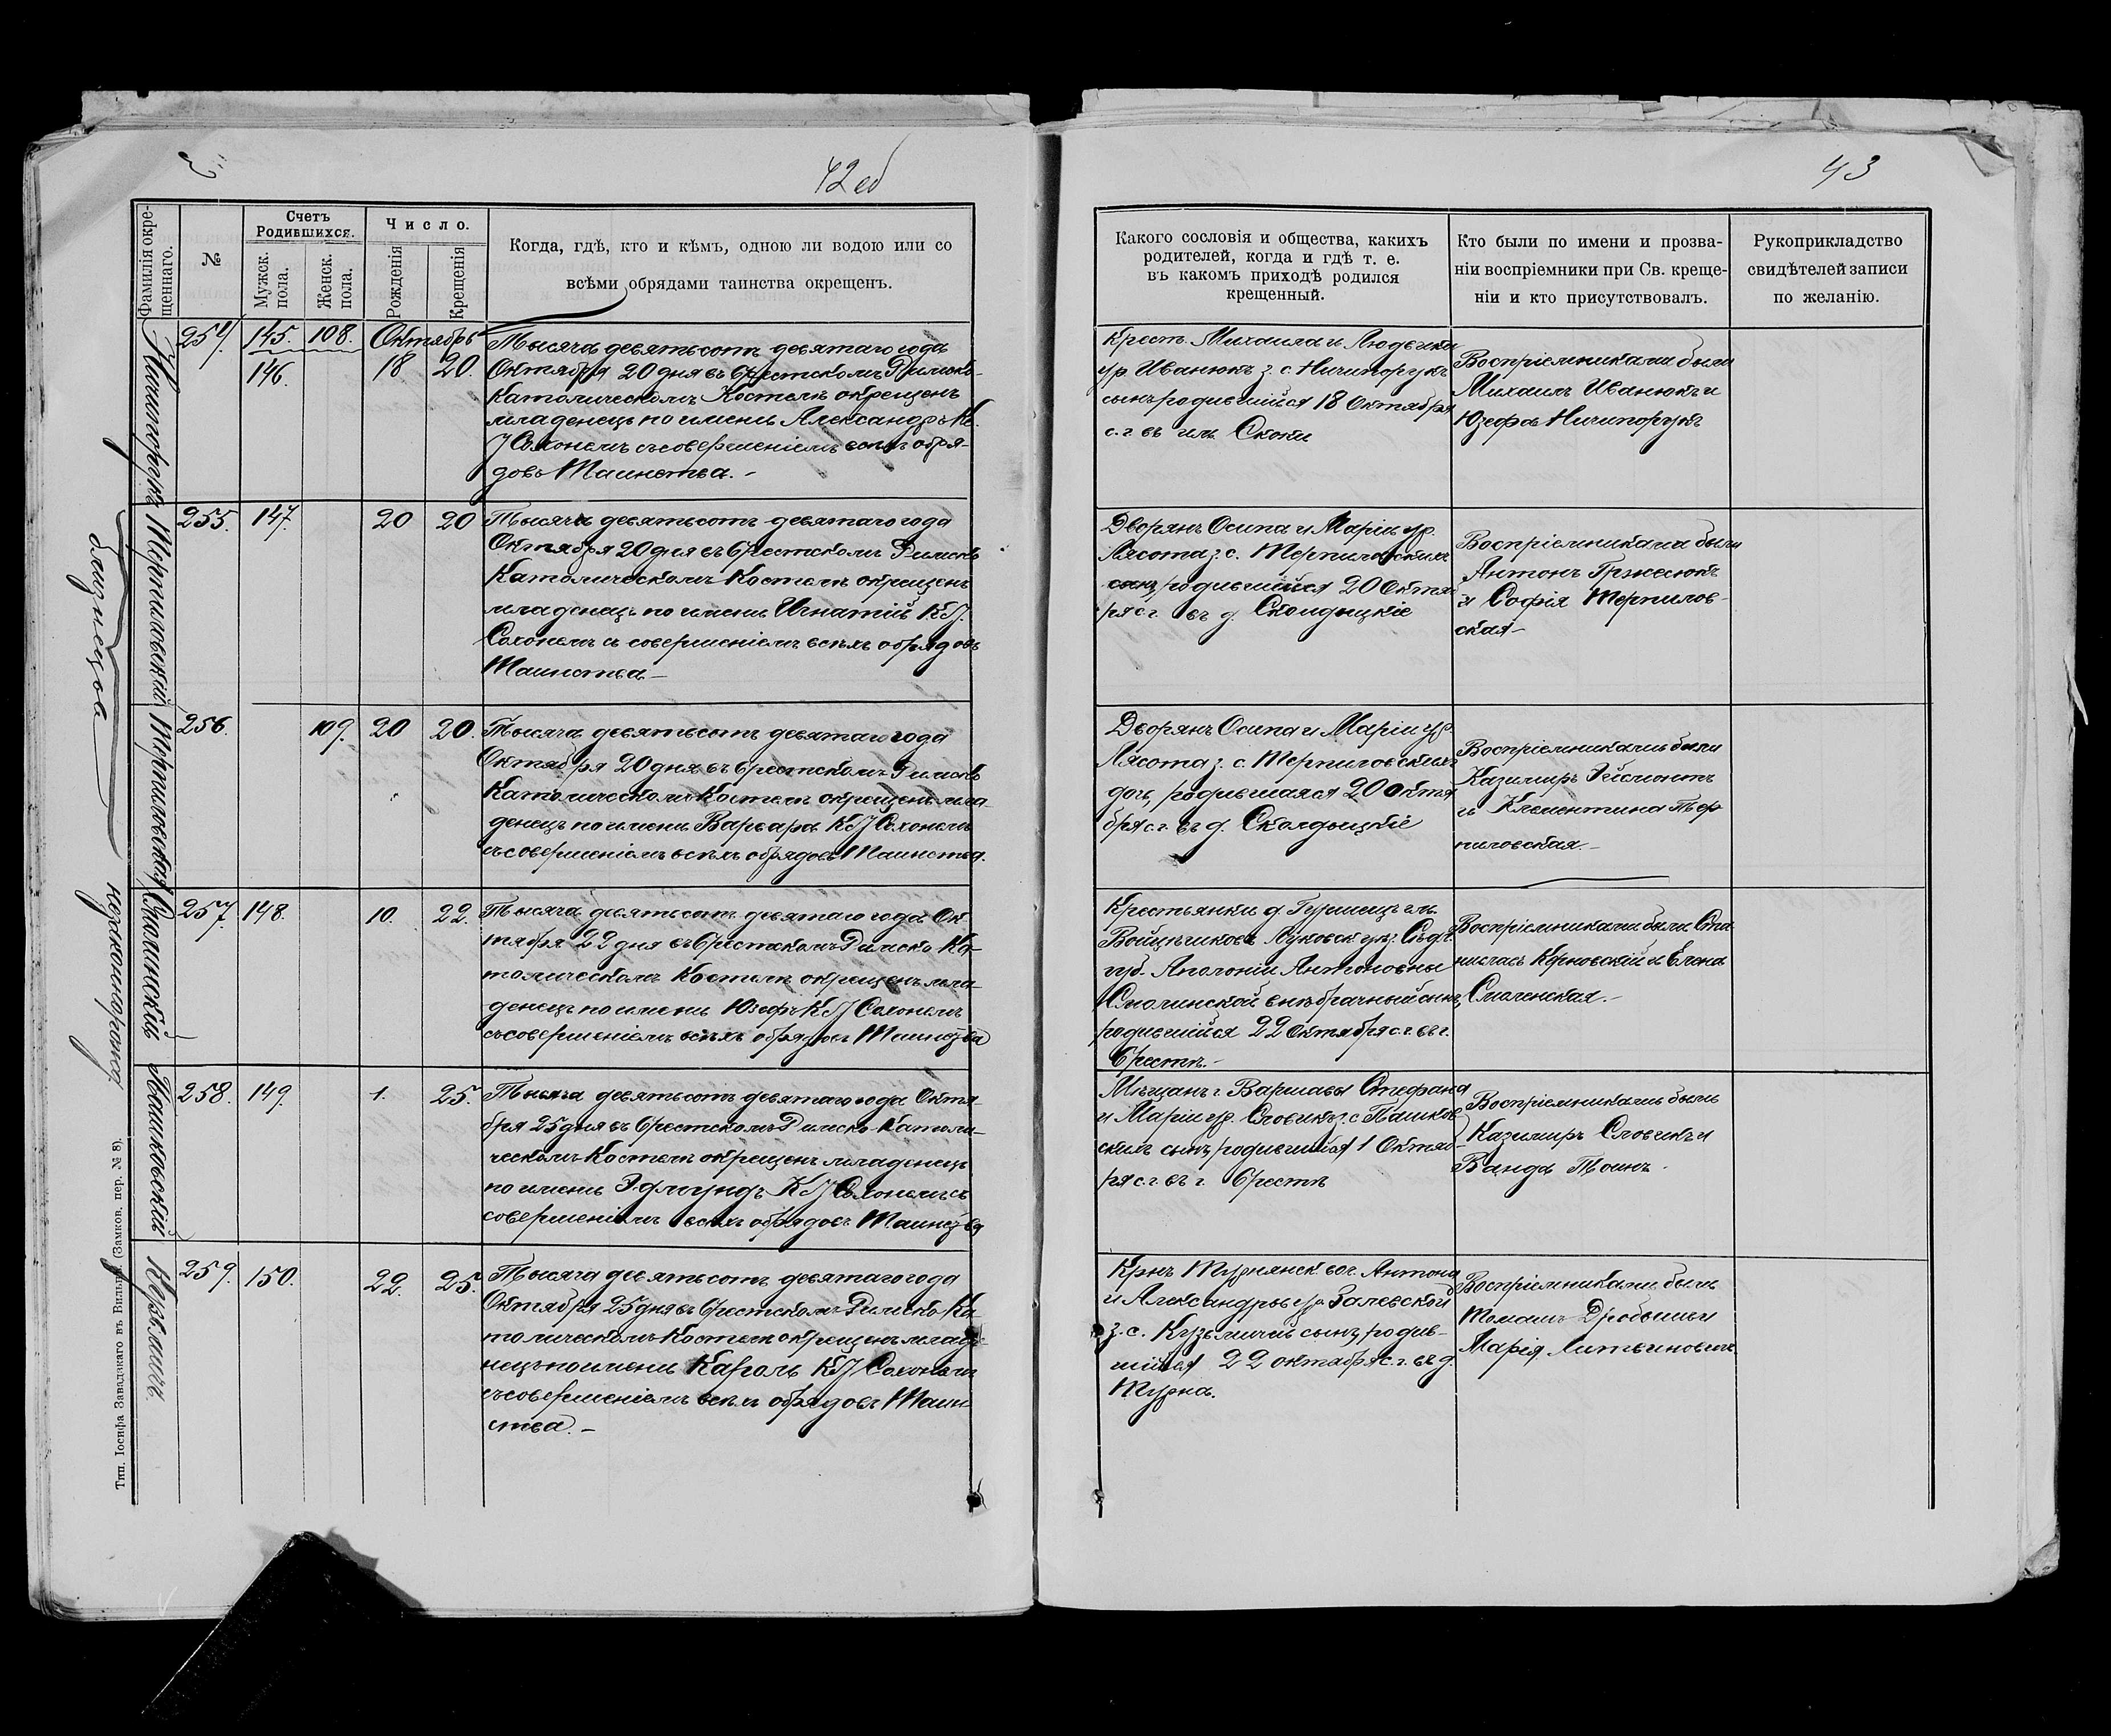 42 об
Фамилія окре-
щеннаго.
№
Счетъ
Родившихся.
Мужск.
пола.
Женск.
пола.
Число.
Рожденія
Крещенія
Когда, гдѣ, кто и кѣмъ, одною ли водою или со
всѣми обрядами таинства окрещенъ.
Ничипорукъ
254.
145.
108.
Октябрь
146.
18
20.
Тысяча девятьсотъ девятаго года
Октября 20 дня въ Брестскомъ Римско-
Католическомъ Костелѣ окрещенъ
младенецъ по имени Александръ Кс.
I Сохонемъ съ совершеніемъ всѣхъ обря-
довъ Таинства.-
Терпиловскій
255.
147.
20
20
Тысяча девятьсотъ девятаго года
Октября 20 дня въ Брестскомъ Римско
Католическомъ Костелѣ окрещенъ
младенецъ по имени Игнатій Кс I.
Сохонемъ съ совершеніемъ всѣхъ обрядовъ
Таинства-
близнецова
Терпиловская
256.
109.
20
20.
Тысяча девятьсотъ девятаго года
Октября 20 дня въ Брестскомъ Римско
Католическомъ Костелѣ окрещенъ мла
денецъ по имени Варвара Кс I Сохонемъ
съ совершеніемъ всѣхъ обрядовъ Таинства.
незаконнорожд
Смолинскій
257.
148.
10.
22.
Тысяча девятьсотъ девятаго года Ок
тября 22 дня въ Брестскомъ Римско Ка-
толическомъ Костелѣ окрещенъ мла-
денецъ по имени Юзефъ Кс I Сохонемъ
съ совершеніемъ всѣхъ обрядовъ Таинства
Пашковскій
258.
149.
1.
25.
Тысяча девятьсотъ девятаго года Октя-
бря 25 дня въ Брестскомъ Римско-Католи-
ческомъ Костелѣ окрещенъ младенецъ
по имени Эдмундъ Кс I Сохонемъ съ
совершеніемъ всѣхъ обрядовъ Таинства
Кузьмичъ.
259.
150.
22.
25.
Тысяча девятьсотъ девятаго года
Октября 25 дня въ Брестскомъ Римско-Ка-
толическомъ Костелѣ окрещенъ младе-
нецъ по имени Кароль Кс I Сохонемъ
съ совершеніемъ всѣхъ обрядовъ Таин
ства.-
Тип. Іосифа Завадзкаго въ Вильнѣ (Замков. пер. № 8).
43
Какого сословія и общества, какихъ
родителей, когда и гдѣ т. е.
въ какомъ приходѣ родился
крещенный.
Кто были по имени и прозва-
ніи воспріемники при Св. креще-
ніи и кто присутствовалъ.
Рукоприкладство
свидѣтелей записи
по желанію.
Крест. Михаила и Людвики
ур Иванюкъ з. с. Ничипорукъ
сынъ родившійся 18 Октября
с. г. въ им. Скоки
Воспріемниками были
Михаилъ Иванюкъ и
Юзефа Ничипорукъ
Дворянъ Осипа и Маріи ур.
Лясота з. с. Терпиловскихъ
сынъ, родившійся 20 Октяб
ря с. г. въ д.
Воспріемниками были
Антонъ Гржесюкъ
и Софія Терпилов-
ская-
Дворянъ Осипа и Маріи ур.
Лясота з. с. Терпиловскихъ
дочь, родившаяся 20 Октя
бря с. г. въ д.
Воспріемниками были
Казимиръ Рейсмонтъ
и Клементина Тер
пиловская.-
Крестьянки д. гм.
Войцѣшковъ Луковск уѣз. Сѣдл.
губ. Аполоніи Антоновны
Смолинской внѣбрачный сынъ,
родившійся 22 Октября с. г. въ г.
Брестѣ.-
Воспріемниками были Ста
ниславъ Керновскій и Елена
Смоленская.-
Мѣщанъ г. Варшавы Стефана
и Маріи ур. Словикъ з. с Пашков
скихъ сынъ, родившійся 1 Октяб
ря с. г. въ г. Брестѣ
Воспріемниками были
Казимиръ Словикъ и
Ванда Тоинъ.
Крнъ Турнянск. вол. Антона
и Александры ур. Залевской
з. с. Кузьмичей сынъ, родив-
шійся 22 октября с. г. въ д.
Турна.
Воспріемниками были
Томашъ Дробышъ и
Марія Литвиновичъ